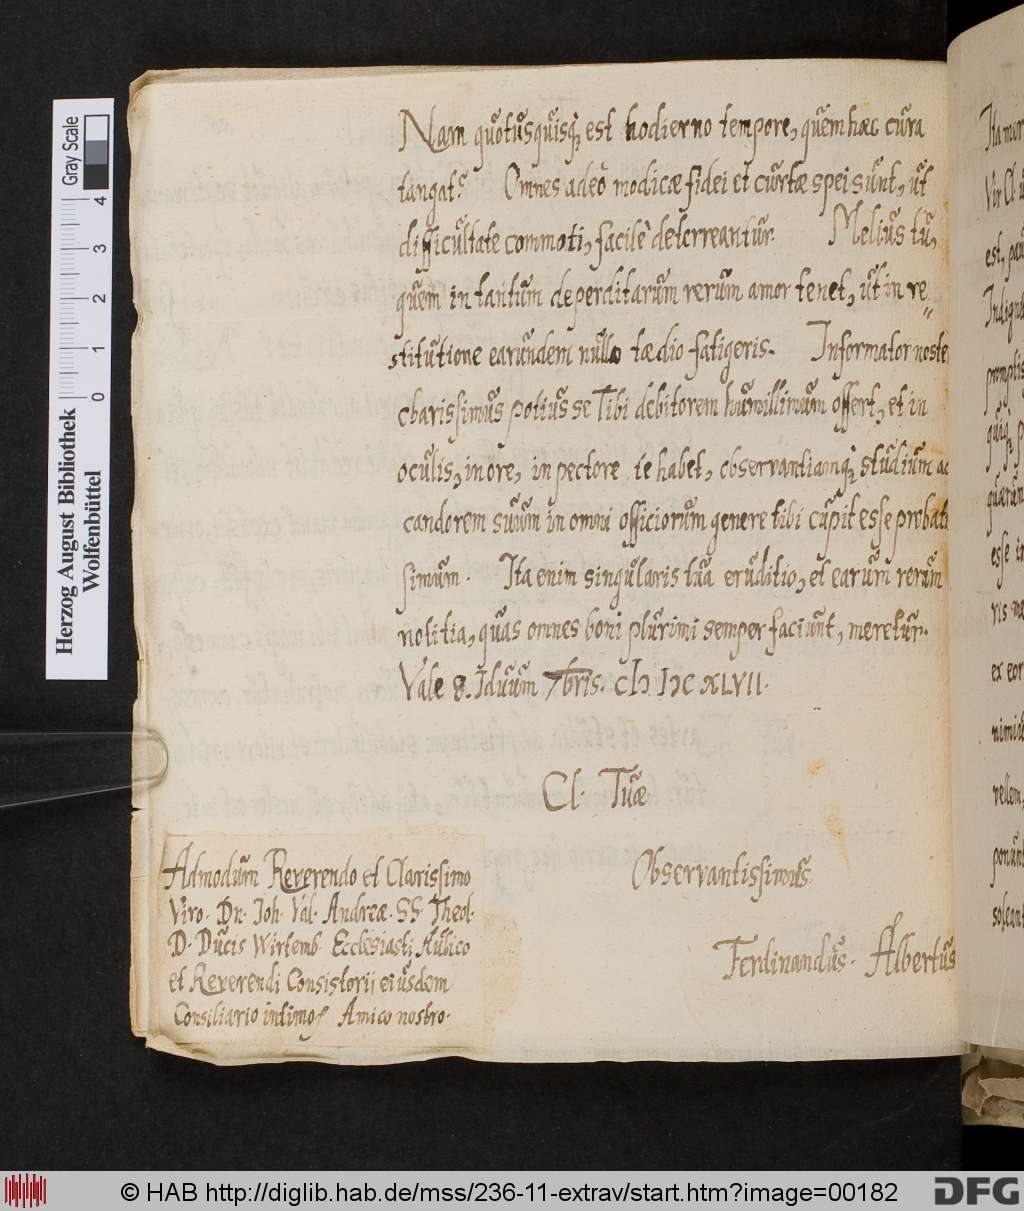 Nam quotusquisq; est hodierno tempore, quem hæc cura
tangat? Omnes adeò modicæ fidei et curtæ spei sunt, ut
difficultate commoti, facilè deterreantur. Melius tu,
quem in tantum deperditarum rerum amor tenet, ut in re=
stitutione earundem nullo tædio fatigeris. Informator noste
charissimus potius se Tibi debitorem humillimum offert, et in
oculis, in ore, in pectore te habet, observantiamq; studium ac
candorem suum in omni officiorum genere tibi cupit esse probatis
simum. Ita enim singularis tua eruditio, et earum rerum
notitia, quas omnes boni plurimi semper faciunt, meretur.
Vale 8. Iduum 7bris. CIƆ IƆC XLVII.
Cl. Tuæ
Observantissimus
Ferdinandus. Albertus
Admodum Reverendo et Clarissimo
Viro. Dn. Joh. Val. Andreæ. SS. Theol.
D. Ducis Wirtemb. Ecclesiasti Aulico
et Reverendi Consistorii eiusdem
Consiliario intimo, Amico nostro.
Ita mor
Vir Cl.
est, pau
Indign
promptis
quiq;
quærun
esse in
ris ne
ex eor
nimia
vellem,
ponunt
soleant
Herzog August Bibliothek
Wolfenbüttel
Gray Scale
0 1 2 3 4
© HAB http://diglib.hab.de/mss/236-11-extrav/start.htm?image=00182
DFG